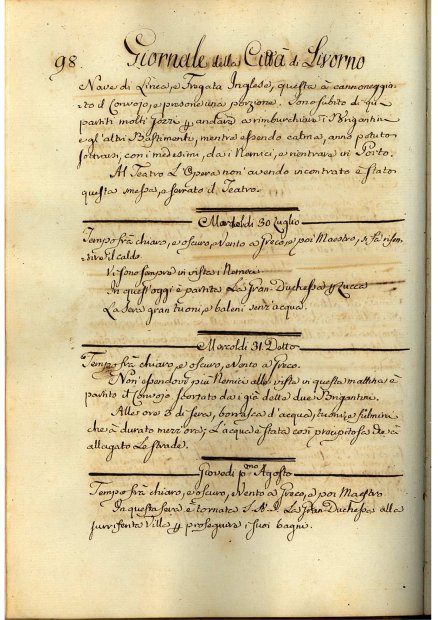 98
Giornale della Città di Livorno
Nave di Linea, e Fregata Inglese, questa à cannoneggia-
to il Convojo, e presone una porzione. Sono subito di qui
partiti molti Gozzi p andare a rimburchiare i Brigantini
e gl'altri Bastimenti, mentre essendo calma, anno potuto
sottrarsi, con i medesimi, da i Nemici, e rientrare in Porto.
Al Teatro L'Opera non avendo incontrato è stata
questa messa, e serrato il Teatro.
Martedì 30 Luglio
Tempo frà chiaro, e oscuro, e Vento a Greco, e poi Maestro, si fà risen-
tire il caldo.
Vi sono sempre in vista i Nemici
In quest'oggi è partita La Gran-Duchessa p Lucca
La sera gran tuoni, e baleni senz'acqua.
Mercoldì 31. Detto
Tempo frà chiaro, e oscuro, Vento a Greco.
Non essendovi più Nemici alla vista in questa mattina è
partito il Convojo scortato da i già detti due Brigantini.
Alle ore 8 di sera, borrasca d'acqua, tuoni, e fulmini
che à durato mezz'ora; L'acqua è stata così precipitosa che à
allagato Le strade.
Giovedì pmo Agosto
Tempo frà chiaro, e oscuro, e Vento a Greco, e poi Maestro
In questa sera è tornata S.A.R. La Gran-Duchessa alla
surriferita Villa p proseguire i suoi bagni.